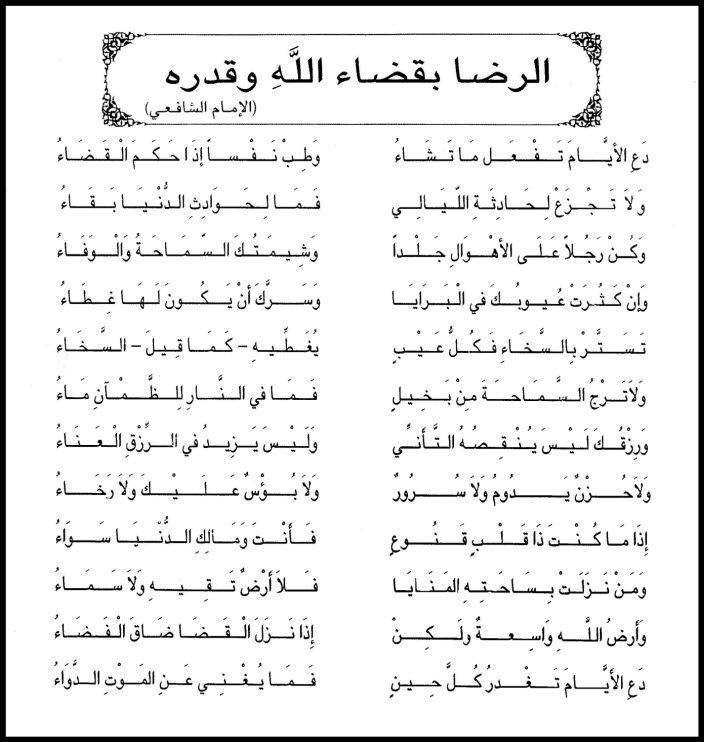 الرضا بقضاء اللَّهِ وقدره
(الإمام الشافعي)
دَعِ الأيَّامَ تَفْعَل مَا تَشَاءُ وَطِبْ نَفْساً إذَا حَكَمَ الْقَضَاءُ
وَلاَ تَجْزَعْ لِحَادِثَةِ اللّيَالِي فَمَا لِحَوَادِثِ الدُّنْيَا بَقَاءُ
وَكُنْ رَجُلاً عَلَى الأهْوَالِ جَلْداً وَشِيمَتُكَ السّمَاحَةُ وَالْوَفَاءُ
وَإنْ كَثُرَتْ عُيوبُكَ في الْبَرَايَا وَسَرَّكَ أنْ يَكُونَ لَهَا غِطَاءُ
تَسَتَّرْ بِالسَّخَاءِ فَكُلُّ عَيْبٍ يُغَطِّيهِ – كَمَا قِيلَ – السَّخَاءُ
وَلاَتَرْجُ السَّمَاحَةَ مِنْ بَخِيلٍ فَمَا في النَّارِ لِلظَّمْآنِ مَاءُ
وَرِزْقُكَ لَيْسَ يُنْقِصُهُ التَّأنِّي وَلَيْسَ يَزِيدُ في الرِّزْقِ الْعَنَاءُ
وَلاَحُزْنٌ يَدُومُ وَلاَ سُرُورٌ وَلاَ بُؤْسٌ عَلَيْكَ وَلاَ رَخَاءُ
إذَا مَا كُنْتَ ذَا قَلْبٍ قَنُوعٍ فَأنْتَ وَمَالِكِ الدُّنْيَا سَوَاءُ
وَمَنْ نَزَلَتْ بِسَاحَتِهِ المَنَايَا فَلاَ أَرْضٌ تَقِيهِ وَلاَ سَمَاءُ
وَأرضُ اللَّهِ وَاسِعةٌ وَلَكِنْ إذَا نَزَلَ الْقَضَا ضَاقَ الْفَضَاءُ
دَعِ الأيَّامَ تَغْدرُ كُلَّ حِينٍ فَمَا يُغْنِي عَنِ المَوْتِ الدَّوَاءُ